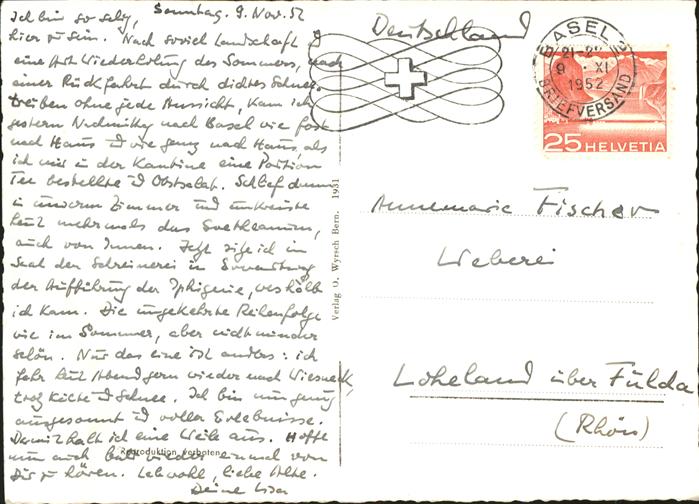 Sonntag. 9. Nov. 52
Ich bin so selig,
hier zu sein. Nach soviel Landschaft &
eine Art Wiederholung des Sommers, nach
einer Rückfahrt durch dichtes Schnee-
treiben ohne jede Aussicht, kam ich
gestern Nachmittag nach Basel wie fast
nach Haus & wie ganz nach Haus, als
ich mir in der Kantine eine Portion
Tee bestellte & Obstsalat. Schlief dann
in unserm Zimmer und umkreiste
heut mehrmals das Goetheanum,
auch von Innen. Jetzt sitze ich im
Saal der Schreinerei in Erwartung
der Aufführung der Iphigenie, weshalb
ich kam. Die umgekehrte Reihenfolge
wie im Sommer, aber nicht minder
schön. Nur das eine ist anders: ich
fahr heut Abend gern wieder nach Wiesneck,
trotz Kälte & Schnee. Ich bin nun ganz
ausgesonnt & voller Erlebnisse.
Damit halt ich eine Weile aus. Hoffe
nun auch bald wieder einmal von
Dir zu hören. Lebwohl, liebe Alte.
Deine
Reproduktion verboten
Verlag O. Wyrsch Bern. 1931
Deutschland
BASEL 2
9. XI
1952
BRIEFVERSAND
25 HELVETIA
Annemarie Fischer
Weberei
Loheland über Fulda
(Rhön)